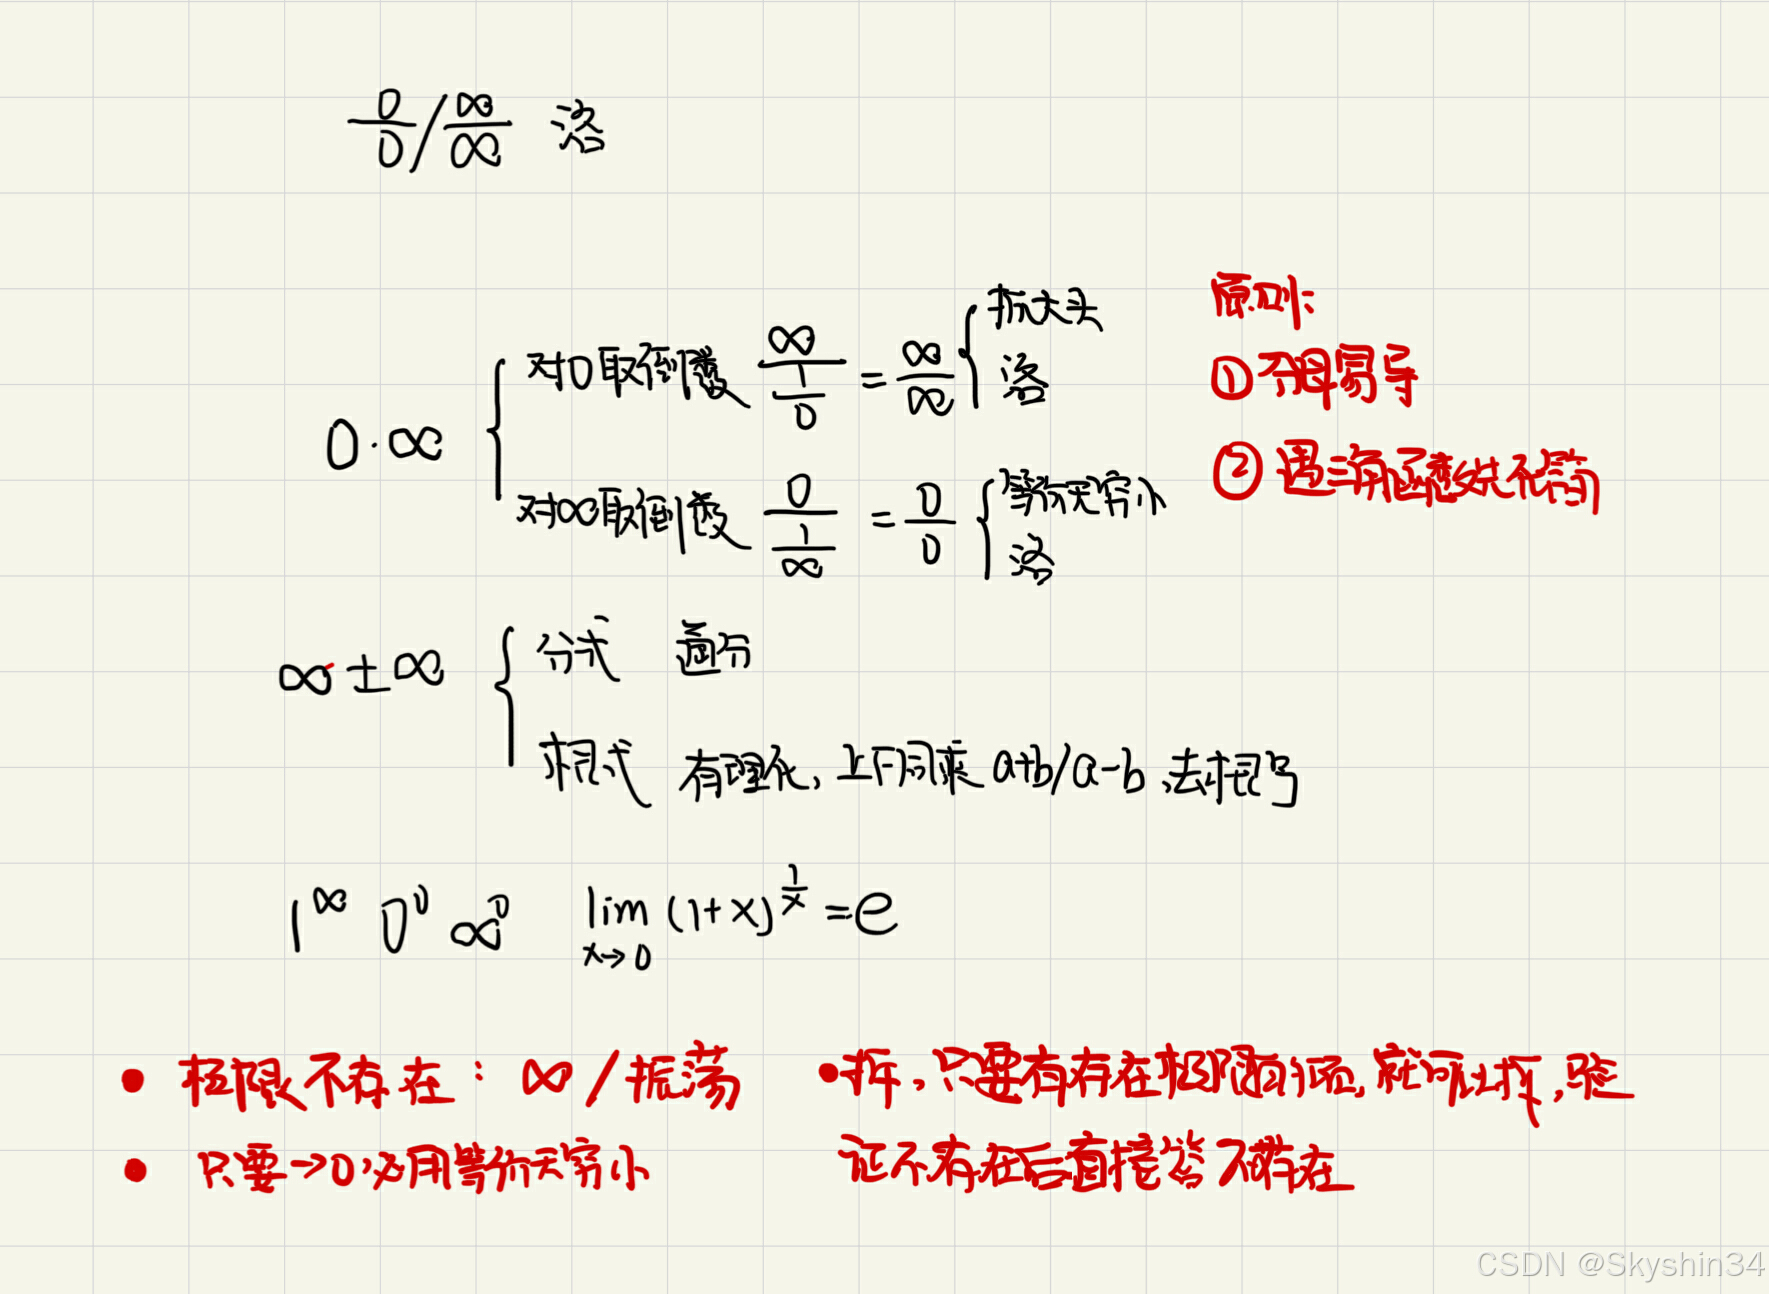 0/0 / ∞/∞ 洛
0·∞
对0取倒数 ∞/(1/0) = ∞/∞ { 抓大头
洛
对∞取倒数 0/(1/∞) = 0/0 { 等价无穷小
洛
原则:
① 分母易导
② 遇三角函数先化简
∞±∞
分式 通分
根式 有理化, 上下同乘 a+b/a-b, 去根号
1^∞ 0^0 ∞^0 lim x→0 (1+x)^(1/x) = e
• 极限不存在: ∞/振荡
• 只要→0,必用等价无穷小
• 拆,只要有存在极限有项,就可以拆,验
证不存在后直接答不存在
CSDN @Skyshin34